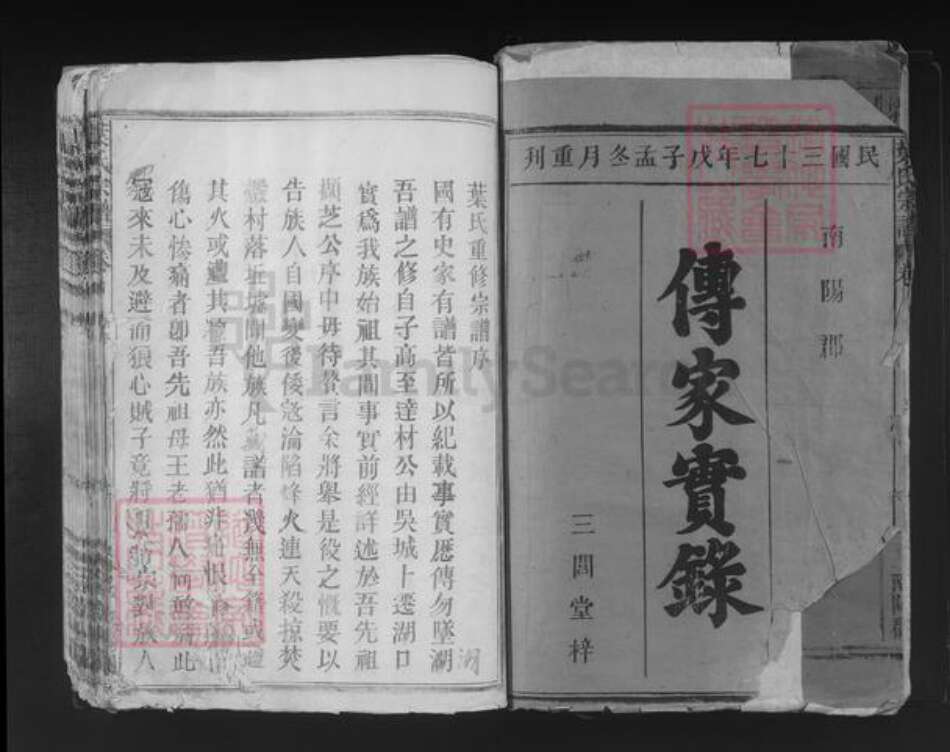 民國三十七年戊子孟冬月重刊
南陽郡
傳家實錄
三閭堂梓
葉氏重修宗譜序
國有史家有譜皆所以紀載事實歷傳勿墜湖
吾譜之修自子高至達材公由吳城上遷湖口
實爲我族始祖其間事實前經詳述於吾先祖
頫芝公序中毋待贅言余將舉是役之慨要以
告族人自國變後倭寇淪陷烽火連天殺掠焚
村落坵墟閭他族凡諸者幾無全籍或遭
其火或遭其吾族亦然此猶非痛恨
傷心慘痛者卽吾先祖母王老孺人何此
寇來未及避而狼心賊子竟將人
湖
FamilySearch